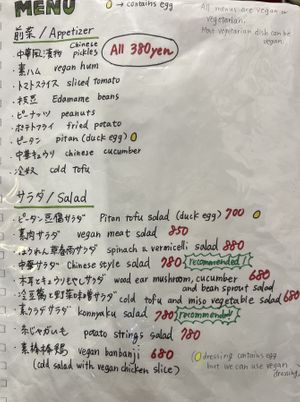 MENU
→ contains egg
All menus are vegan or vegetarian.
Most vegetarian dish can be vegan.
前菜/Appetizer
All 380yen
・中華風漬物 Chinese pickles
・素ハム vegan hum
・トマトスライス sliced tomato
・枝豆 Edamame beans
・ピーナッツ peanuts
・ポテトフライ fried potato
・ピータン pitan (duck egg)
・中華キュウリ chinese cucumber
・冷奴 cold tofu
サラダ/Salad
・ピータン豆腐サラダ Pitan tofu salad (duck egg) 700
・素肉サラダ vegan meat salad 850
・ほうれん草春雨サラダ spinach & vermicelli salad 880
・中華サラダ Chinese style salad 780 recommended!
・木耳とキュウリもやしサラダ wood ear mushroom, cucumber and bean sprout salad 680
・冷豆腐と野菜味噌サラダ cold tofu and miso vegetable salad 680
・素クラゲサラダ konnyaku salad 780 recommended!
・糸じゃがいも potato strings salad 780
・素棒棒鶏 vegan banbanji 680
(cold salad with vegan chicken slice)
dressing contains egg
but we can use vegan dressing.